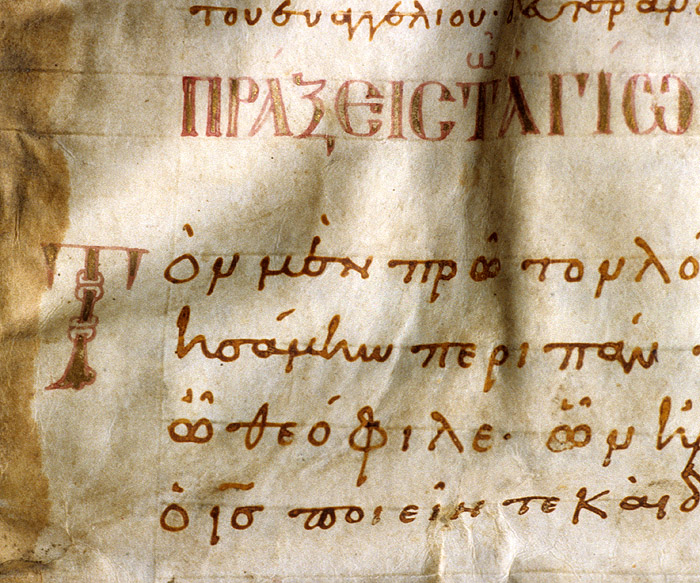 του ευαγγελίου·
ΠΡΑΞΕΙC Τῶ ἉΓΊΩ
Τὸν μὲν πρῶτον λό
ησάμην περι πάν
ὦ θεόφιλε· ὧν ἠ
ὁ ι̅σ̅ ποιεῖν τε και δ